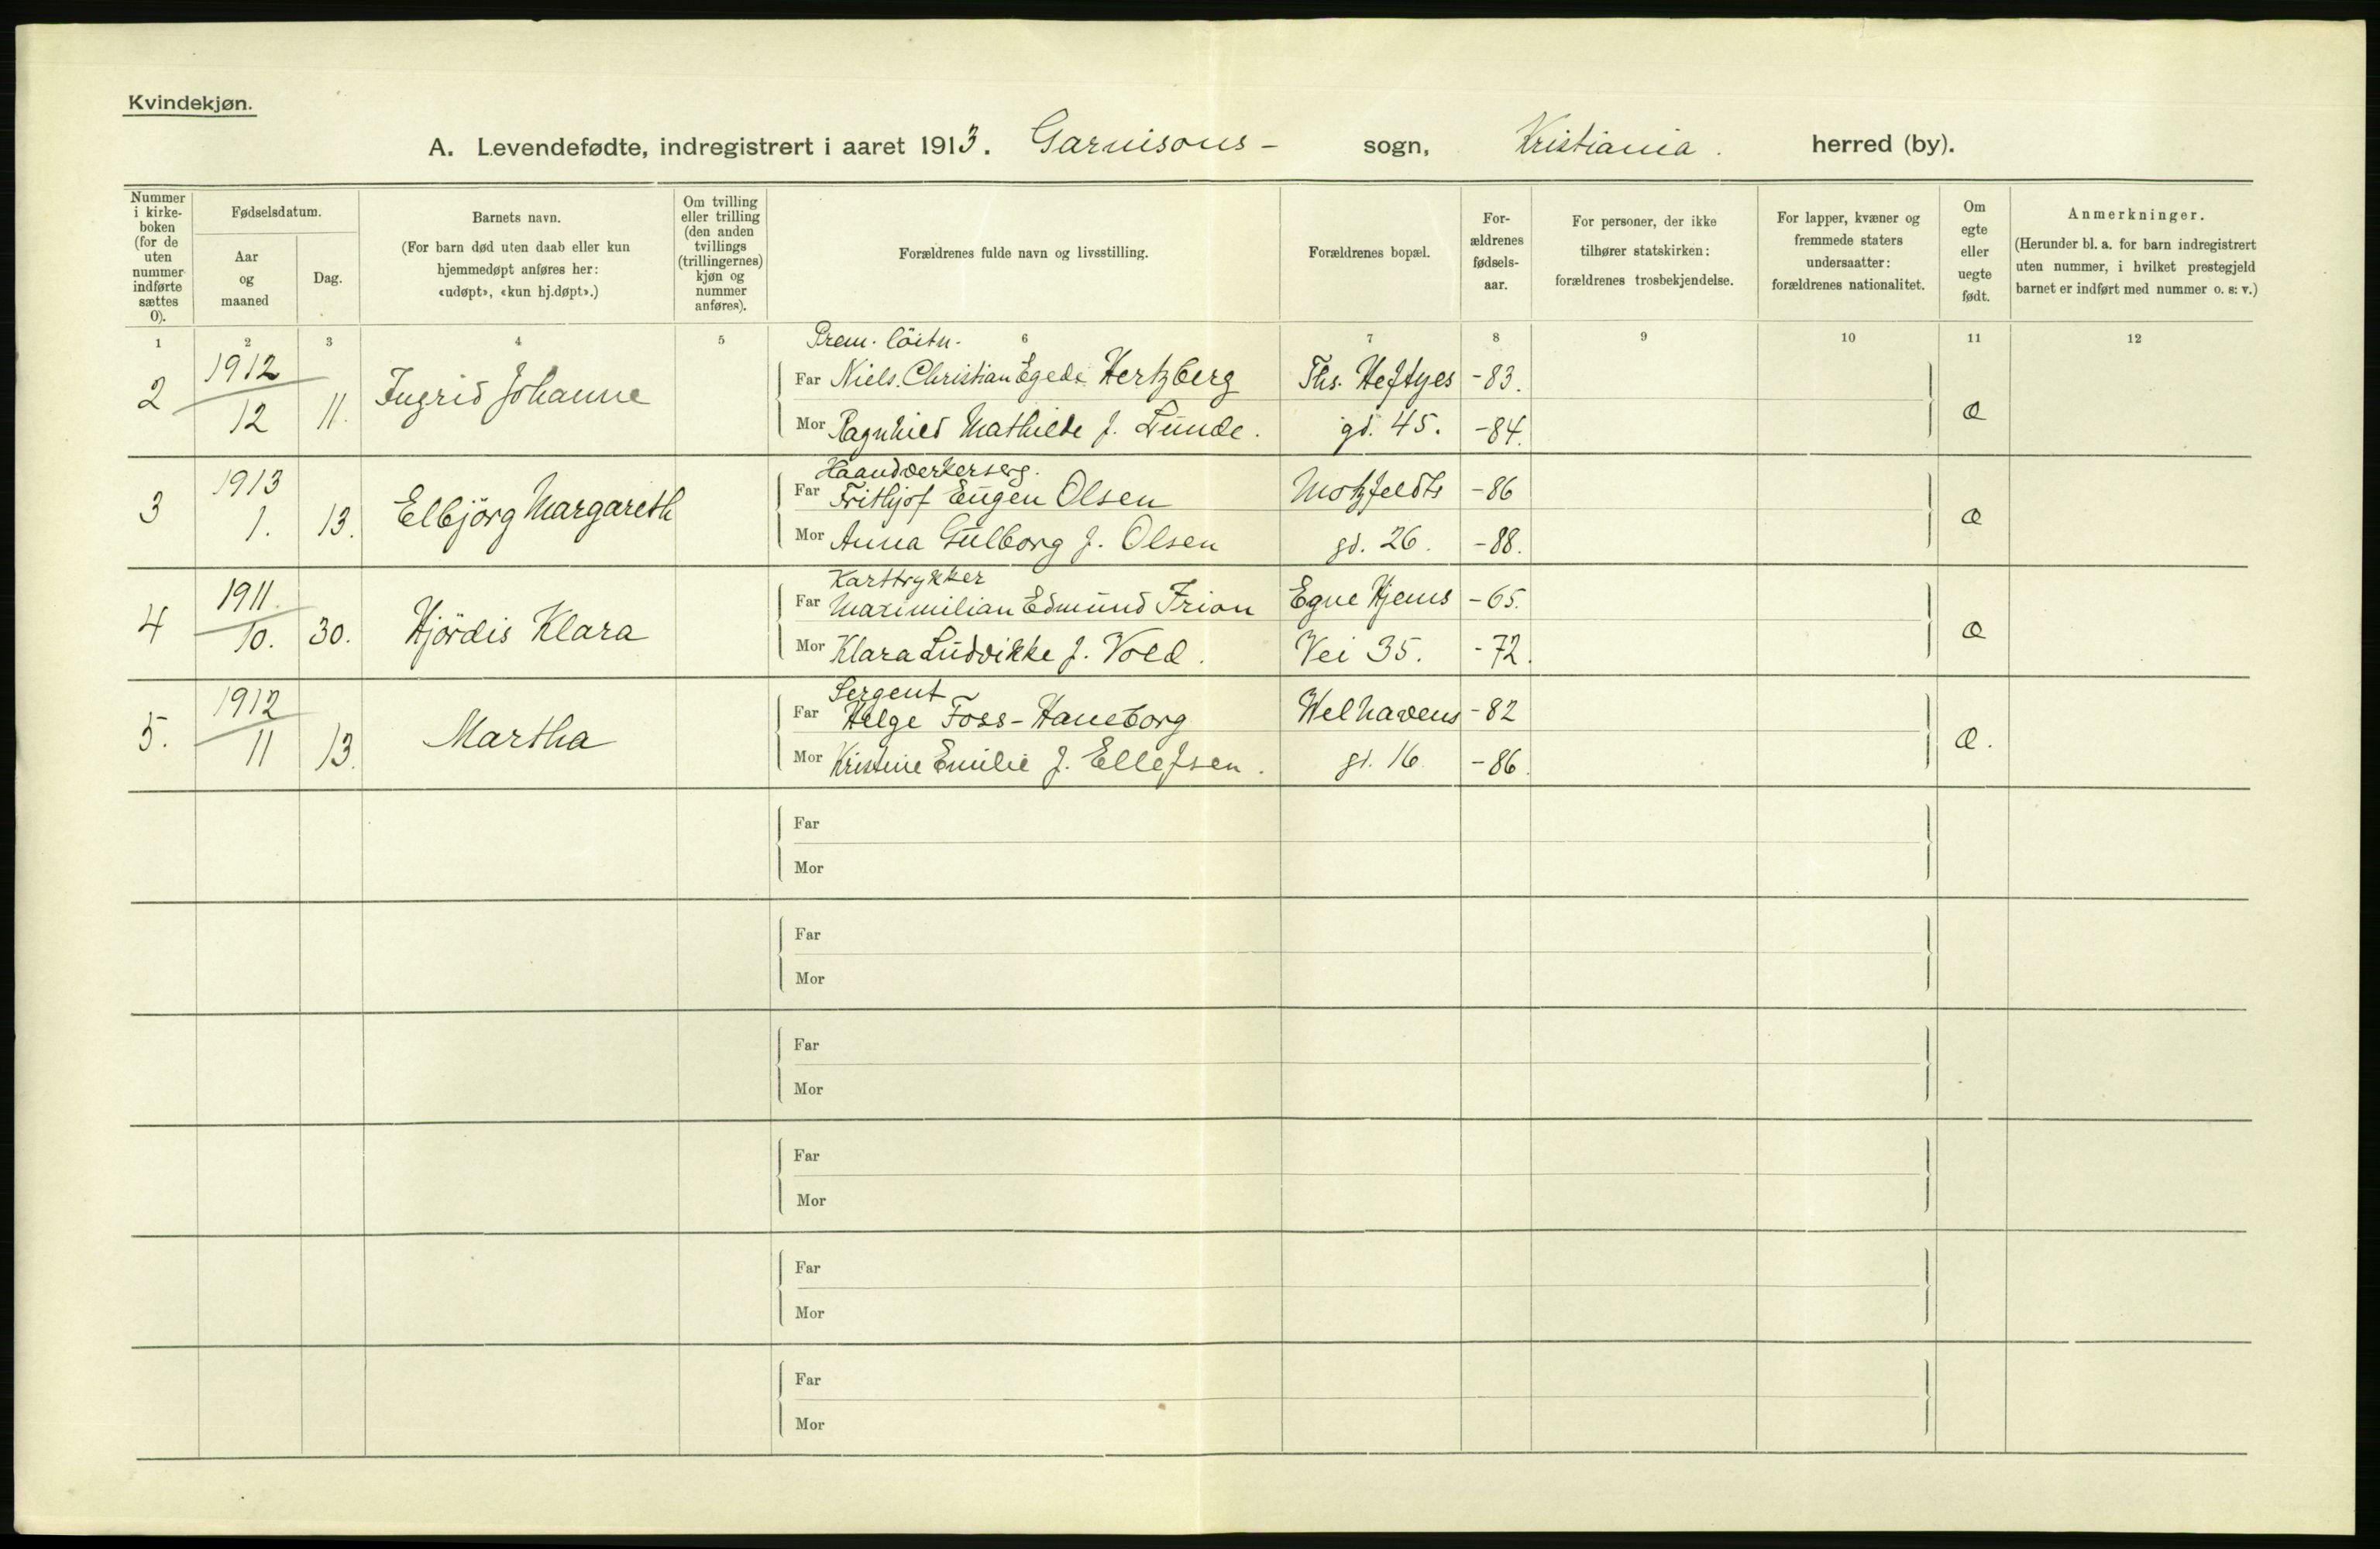 Kvindekjøn.
A. Levendefødte, indregistrert i aaret 1913. Garnisons- sogn, Kristiania. herred (by).
Nummer i kirke-boken (for de uten nummer indførte sættes 0).
Fødselsdatum.
Aar og maaned
Dag.
Barnets navn.
(For barn død uten daab eller kun hjemmedøpt anføres her: «udøpt», «kun hj.døpt».)
Om tvilling eller trilling (den anden tvillings (trillingernes) kjøn og nummer anføres).
Forældrenes fulde navn og livsstilling.
Forældrenes bopæl.
For-ældrenes fødsels-aar.
For personer, der ikke tilhører statskirken: forældrenes trosbekjendelse.
For lapper, kvæner og fremmede staters undersaatter: forældrenes nationalitet.
Om egte eller uegte født.
Anmerkninger.
(Herunder bl. a. for barn indregistrert uten nummer, i hvilket prestegjeld barnet er indført med nummer o. s. v.)
1 2 3 4 5 6 7 8 9 10 11 12
Prem. löitn.
2 1912 12 11. Ingrid Johanne Far Niels Christian Egede Hertzberg Ths. Heftyes -83. æ
Mor Ragnhild Mathilde f. Lunde. gd. 45. -84.
Haandværkerserg.
3 1913 1. 13. Elbjörg Margareth Far Frithjof Eugen Olsen Motzfeldts -86 æ
Mor Anna Gulborg f. Olsen gd. 26. -88.
Karttrykker
4 1911 10. 30. Hjördis Klara Far Maximilian Edmund Frion Egne Hjems -65. æ
Mor Klara Ludvikke f. Vold. Vei 35. -72.
Sergent
5. 1912 11 13. Martha Far Helge Foss-Haneborg Welhavens -82 æ.
Mor Kristine Emilie f. Ellefsen. gd. 16 -86.
Far
Mor
Far
Mor
Far
Mor
Far
Mor
Far
Mor
Far
Mor